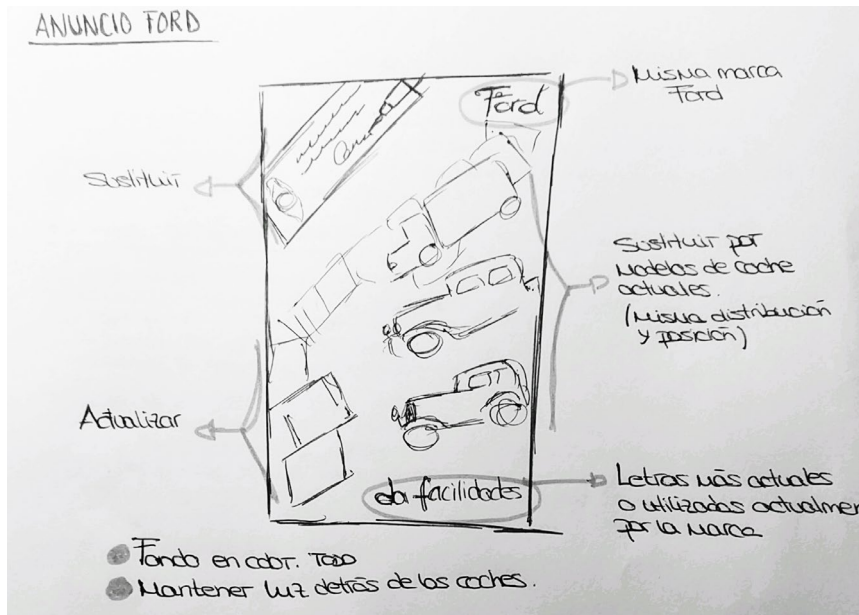 ANUNCIO FORD
Ford
Misma marca
Ford
Sustituir
Sustituir por
modelos de coche
actuales.
(Misma distribución
y posición)
Actualizar
da facilidades
Letras más actuales
o utilizadas actualmen
por la marca
Fondo en color. TODO
Mantener luz detrás de los coches.